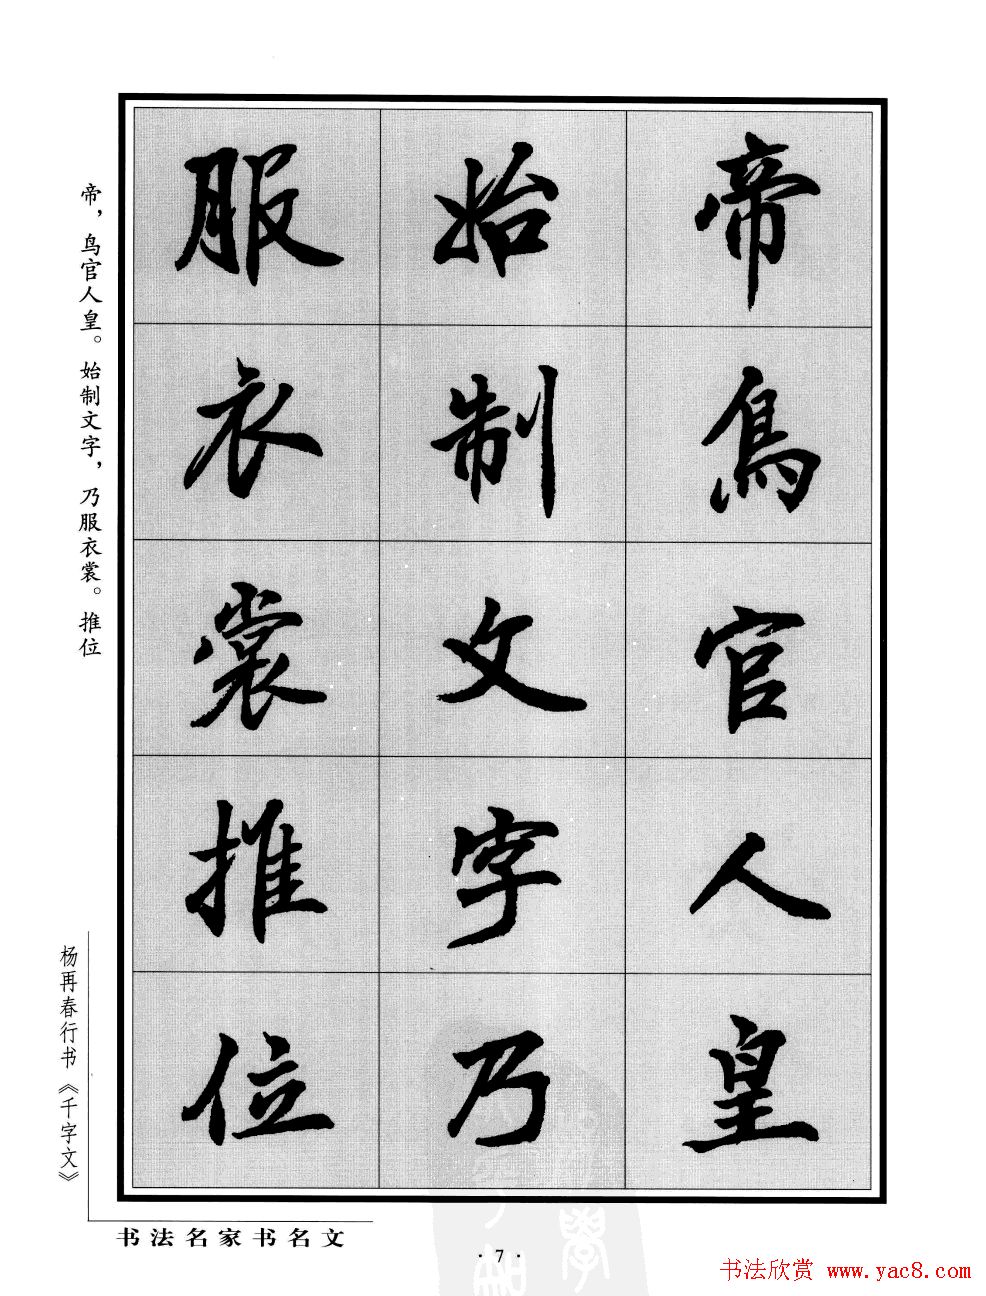 帝鳥官人皇
始制文字乃
服衣裳推位
帝，鸟官人皇。始制文字，乃服衣裳。推位
杨再春行书《千字文》
书法名家书名文
·7·
书法欣赏 www.yac8.com